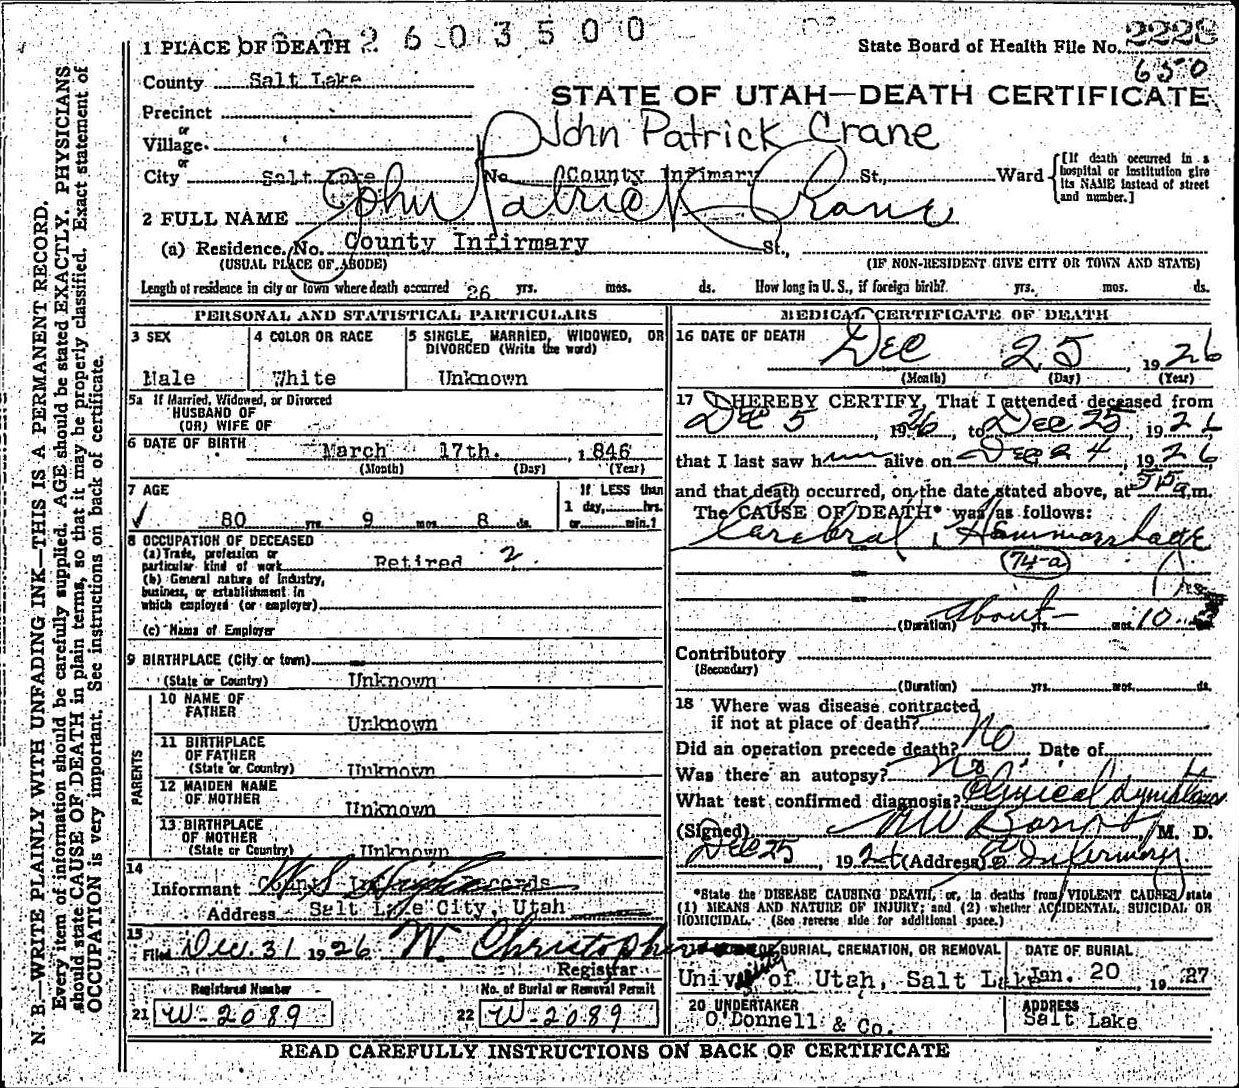 2 6 0 3 5 0 0
1 PLACE OF DEATH
State Board of Health File No. 2228
650
County Salt Lake
STATE OF UTAH—DEATH CERTIFICATE
Precinct
or
Village
John Patrick Crane
or
City Salt Lake No. County Infimary St., Ward
[If death occurred in a hospital or institution give its NAME instead of street and number.]
2 FULL NAME John Patrick Crane
(a) Residence, No. County Infirmary St.,
(USUAL PLACE OF ABODE) (IF NON-RESIDENT GIVE CITY OR TOWN AND STATE)
Length of residence in city or town where death occurred 26 yrs. mos. ds. How long in U. S., if foreign birth? yrs. mos. ds.
PERSONAL AND STATISTICAL PARTICULARS
3 SEX
Male
4 COLOR OR RACE
White
5 SINGLE, MARRIED, WIDOWED, OR
DIVORCED (Write the word)
Unknown
5a If Married, Widowed, or Divorced
HUSBAND OF
(OR) WIFE OF
6 DATE OF BIRTH March 17th. , 1846
(Month) (Day) (Year)
7 AGE
80 yrs. 9 mos. 8 ds.
If LESS than
1 day, hrs.
or min.?
8 OCCUPATION OF DECEASED
(a) Trade, profession or
particular kind of work Retired 2
(b) General nature of Industry,
business, or establishment in
which employed (or employer)
(c) Name of Employer
9 BIRTHPLACE (City or town)
(State or Country) Unknown
PARENTS
10 NAME OF
FATHER
Unknown
11 BIRTHPLACE
OF FATHER
(State or Country) Unknown
12 MAIDEN NAME
OF MOTHER
Unknown
13 BIRTHPLACE
OF MOTHER
(State or Country) Unknown
14
Informant County Records
Address Salt Lake City, Utah
15
Filed Dec. 31 1926 W. Christopher
Registrar
Registered Number
21 W-2089
No. of Burial or Removal Permit
22 W-2089
MEDICAL CERTIFICATE OF DEATH
16 DATE OF DEATH
Dec 25 , 1926
(Month) (Day) (Year)
17 I HEREBY CERTIFY, That I attended deceased from
Dec 5 , 1926, to Dec 25 , 1926
that I last saw h alive on Dec 24 , 1926,
and that death occurred, on the date stated above, at m.
The CAUSE OF DEATH* was as follows:
Carebral Hammorrhage
(74-a)
(Duration) About yrs. mos. 10
Contributory
(Secondary)
(Duration) yrs. mos. ds.
18 Where was disease contracted
if not at place of death?
Did an operation precede death? No Date of
Was there an autopsy? No
What test confirmed diagnosis? Clinical
(Signed) M. D.
Dec 25 , 1926 (Address) Co Infirmary
*State the DISEASE CAUSING DEATH, or, in deaths from VIOLENT CAUSES, state
(1) MEANS AND NATURE OF INJURY; and (2) whether ACCIDENTAL, SUICIDAL OR
HOMICIDAL. (See reverse side for additional space.)
OF BURIAL, CREMATION, OR REMOVAL
University of Utah, Salt Lake
DATE OF BURIAL
Jan. 20 , 1927
20 UNDERTAKER
O'Donnell & Co.
ADDRESS
Salt Lake
READ CAREFULLY INSTRUCTIONS ON BACK OF CERTIFICATE
N. B.—WRITE PLAINLY WITH UNFADING INK—THIS IS A PERMANENT RECORD.
Every item of information should be carefully supplied. AGE should be stated EXACTLY. PHYSICIANS
should state CAUSE OF DEATH in plain terms, so that it may be properly classified. Exact statement of
OCCUPATION is very important. See instructions on back of certificate.